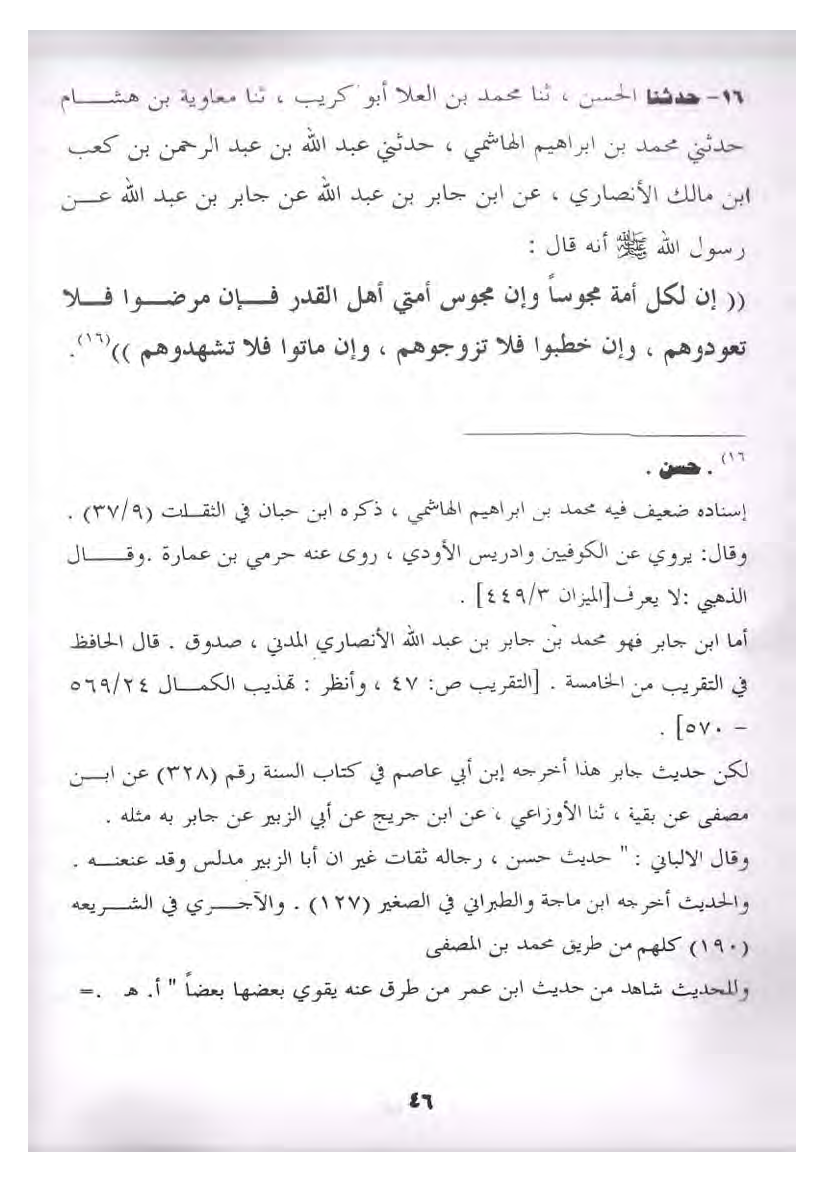 ١٦- حدثنا الحسن ، ثنا محمد بن العلا أبو كريب ، ثنا معاوية بن هشام
حدثني محمد بن ابراهيم الهاشمي ، حدثني عبد الله بن عبد الرحمن بن كعب
ابن مالك الأنصاري ، عن ابن جابر بن عبد الله عن جابر بن عبد الله عن
رسول الله ﷺ أنه قال :
(( إن لكل أمة مجوساً وإن مجوس أمتي أهل القدر فإن مرضوا فلا
تعودوهم ، وإن خطبوا فلا تزوجوهم ، وإن ماتوا فلا تشهدوهم ))(١٦).
١٦) . حسن .
إسناده ضعيف فيه محمد بن ابراهيم الهاشمي ، ذكره ابن حبان في الثقات (٣٧/٩) .
وقال: يروي عن الكوفيين وادريس الأودي ، روى عنه حرمي بن عمارة .وقال
الذهبي :لا يعرف[الميزان ٤٤٩/٣] .
أما ابن جابر فهو محمد بن جابر بن عبد الله الأنصاري المدني ، صدوق . قال الحافظ
في التقريب من الخامسة . [التقريب ص: ٤٧ ، وأنظر : تهذيب الكمال ٥٦٩/٢٤
– ٥٧٠] .
لكن حديث جابر هذا أخرجه إبن أبي عاصم في كتاب السنة رقم (٣٢٨) عن ابن
مصفى عن بقية ، ثنا الأوزاعي ، عن ابن جريج عن أبي الزبير عن جابر به مثله .
وقال الالباني : " حديث حسن ، رجاله ثقات غير ان أبا الزبير مدلس وقد عنعنه .
والحديث أخرجه ابن ماجة والطبراني في الصغير (١٢٧) . والآجري في الشريعه
(١٩٠) كلهم من طريق محمد بن المصفى
وللحديث شاهد من حديث ابن عمر من طرق عنه يقوي بعضها بعضاً " أ. هـ .=
٤٦